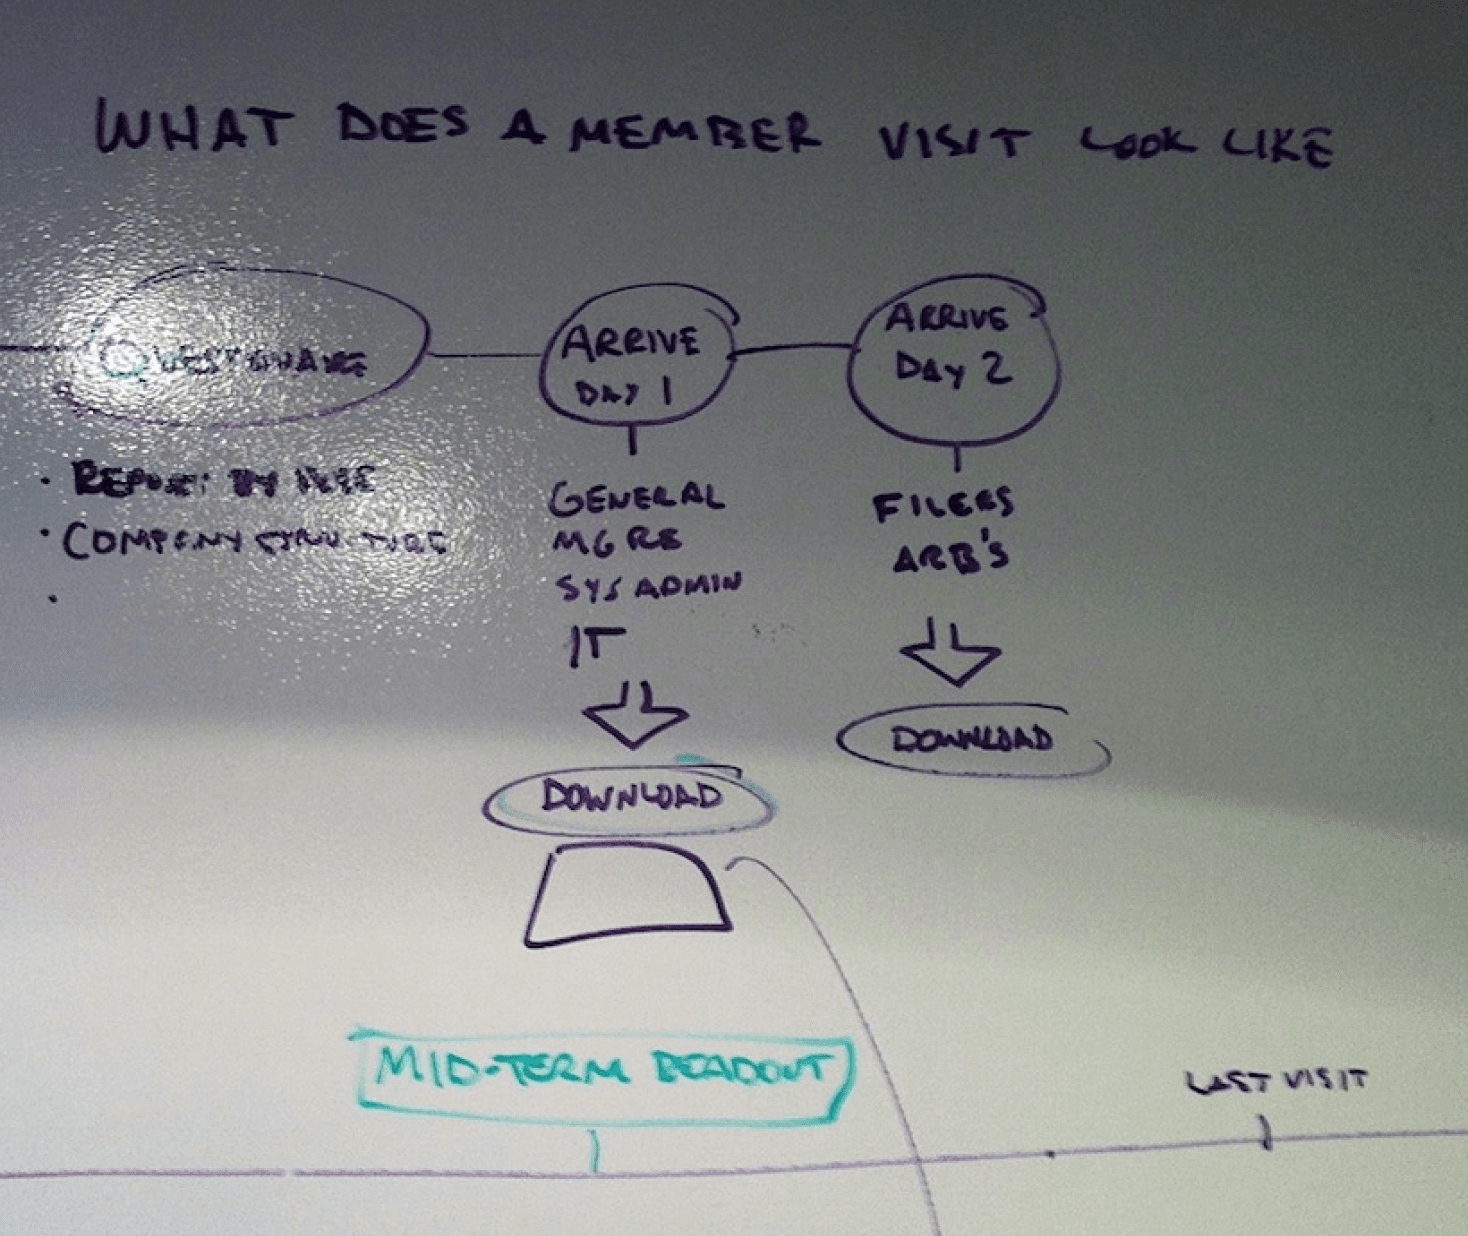 WHAT DOES A MEMBER VISIT LOOK LIKE
ARRIVE
DAY 1
ARRIVE
DAY 2
COMPANY STRUCTURE
GENERAL
MGRS
SYSADMIN
IT
FILERS
ARB'S
DOWNLOAD
DOWNLOAD
MID-TERM READOUT
LAST VISIT